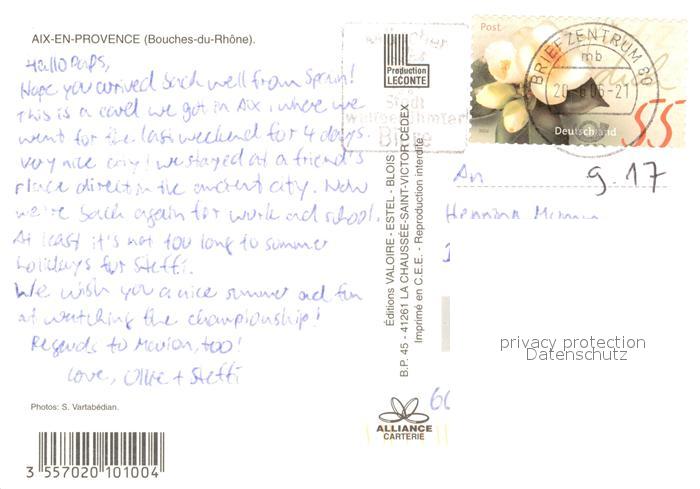 AIX-EN-PROVENCE (Bouches-du-Rhône).
Hallo Paps,
Hope you arrived back well from Spain!
This is a card we got in Aix, where we
went for the last weekend for 4 days.
Very nice city! We stayed at a friend's
place direct in the ancient city. Now
we're back again for work and school.
At least it's not too long to summer
holidays for Steffi.
We wish you a nice summer and fun
at watching the championship!
Regards to Marion, too!
Love, Ollie + Steffi
Photos: S. Vartabédian.
3 557020 101004
Production
LECONTE
Éditions VALOIRE - ESTEL - BLOIS
B.P. 45 - 41261 LA CHAUSSÉE-SAINT-VICTOR CEDEX
Imprimé en C.E.E. - Reproduction interdite
ALLIANCE
CARTERIE
Stadt
Post
Deutschland
55
BRIEFZENTRUM 60
mb
21
An
9.17
privacy protection
Datenschutz